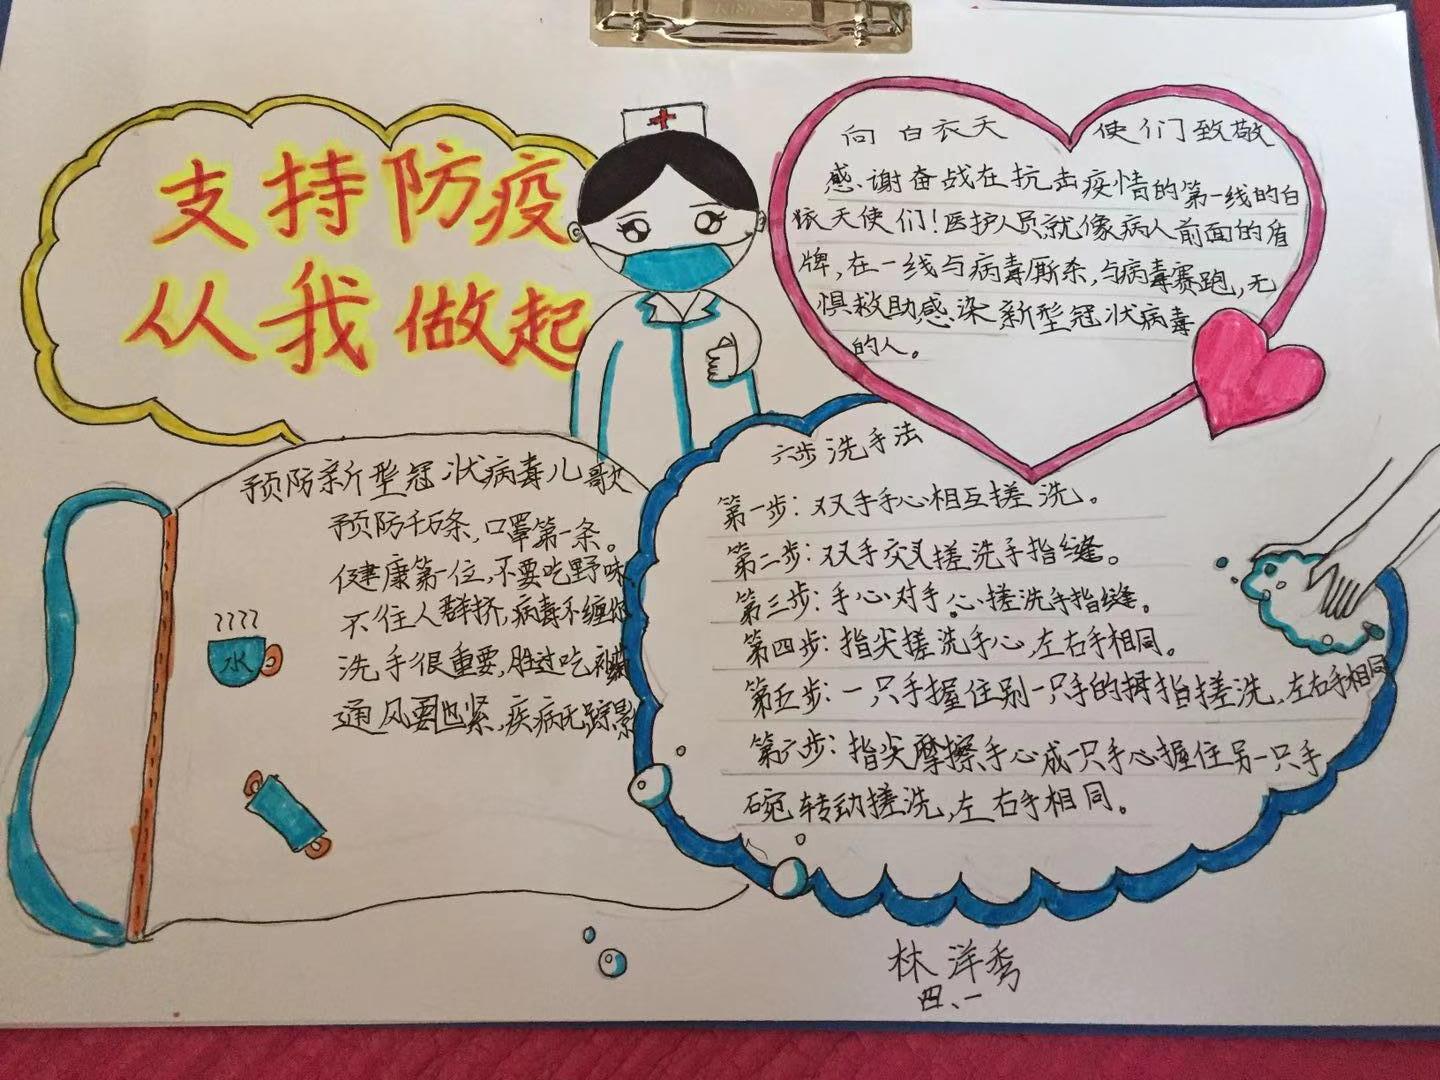 支持防疫
从我做起
向白衣天使们致敬
感谢奋战在抗击疫情的第一线的白
衣天使们！医护人员就像病人前面的盾
牌，在一线与病毒厮杀，与病毒赛跑，无
惧救助感染新型冠状病毒
的人。
预防新型冠状病毒儿歌
预防千万条，口罩第一条。
健康第一位，不要吃野味
不往人群挤，病毒不缠你
洗手很重要，胜过吃补药
通风要也紧，疾病无踪影
水
六步洗手法
第一步：双手手心相互搓洗。
第二步：双手交叉搓洗手指缝。
第三步：手心对手心搓洗手指缝。
第四步：指尖搓洗手心，左右手相同。
第五步：一只手握住别一只手的拇指搓洗，左右手相同
第六步：指尖摩擦手心或一只手心握住另一只手
碗转动搓洗，左右手相同。
林洋秀
四、一